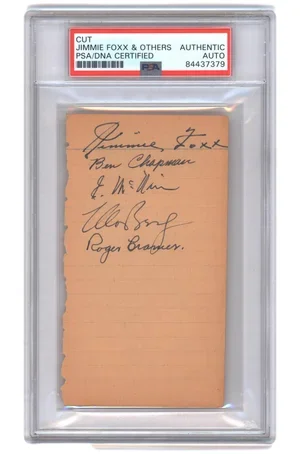 CUT
JIMMIE FOXX & OTHERS AUTHENTIC
PSA/DNA CERTIFIED PSA AUTO
84437379
Jimmie Foxx
Ben Chapman
E. McNair
Moe Berg
Roger Cramer.